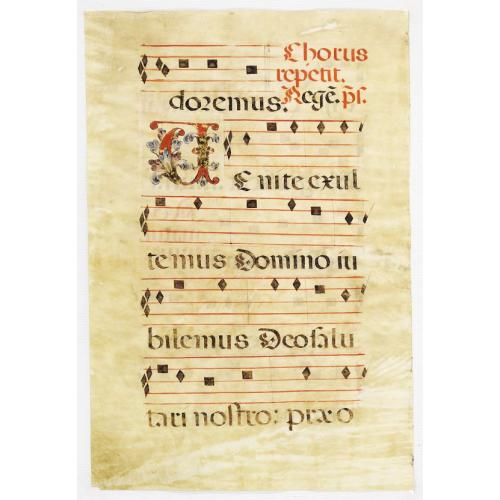 Chorus
repetit.
doremus. Regē. pſ.
Venite exul
temus Domino iu
bilemus Deo ſalu
tari noſtro: præo